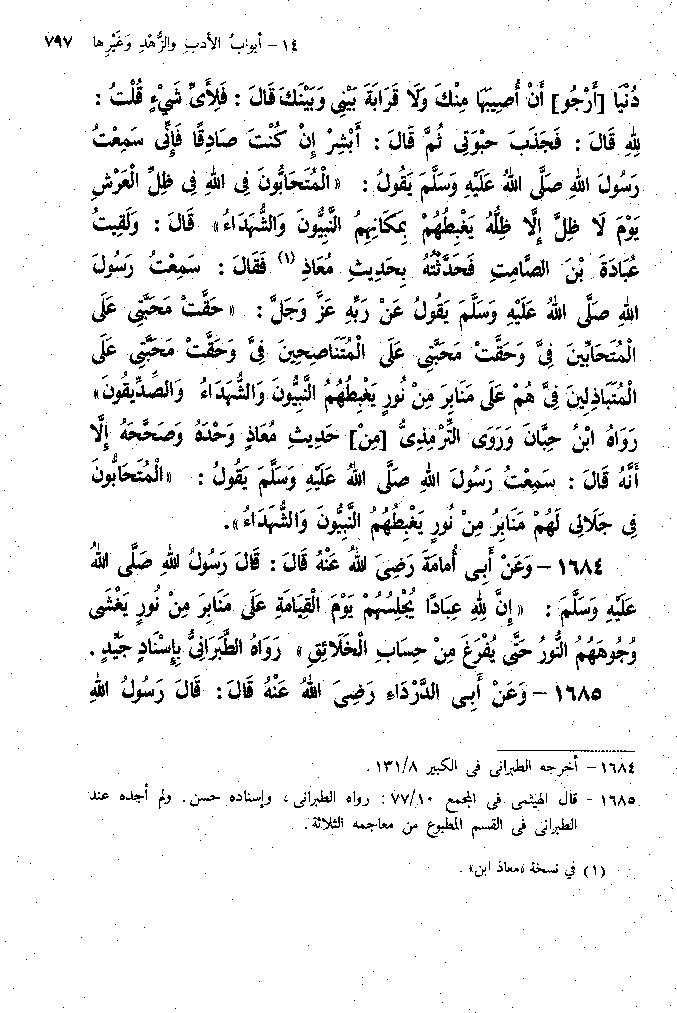 ١٤ - أبوابُ الأدبِ والزُّهْدِ وَغَيْرِها ٧٩٧
دُنْيَا [أَرْجُو] أَنْ أُصِيبَهَا مِنْكَ وَلَا قَرَابَةَ بَيْنِي وَبَيْنَكَ قَالَ : فَلِأَىِّ شَىْءٍ قُلْتُ :
لِلهِ قَالَ : فَجَذَبَ حِبْوَتِى ثُمَّ قَالَ : أَبْشِرْ إِنْ كُنْتَ صَادِقًا فَإِنِّى سَمِعْتُ
رَسُولَ اللهِ صَلَّى اللهُ عَلَيْهِ وَسَلَّمَ يَقُولُ : «الْمُتَحَابُّونَ فِى اللهِ فِى ظِلِّ الْعَرْشِ
يَوْمَ لَا ظِلَّ إِلَّا ظِلُّهُ يَغْبِطُهُمْ بِمَكَانِهِمُ النَّبِيُّونَ وَالشُّهَدَاءُ» قَالَ : وَلَقِيتُ
عُبَادَةَ بْنَ الصَّامِتِ فَحَدَّثْتُهُ بِحَدِيثِ مُعَاذٍ (١) فَقَالَ : سَمِعْتُ رَسُولَ
اللهِ صَلَّى اللهُ عَلَيْهِ وَسَلَّمَ يَقُولُ عَنْ رَبِّهِ عَزَّ وَجَلَّ : «حَقَّتْ مَحَبَّتِى عَلَى
الْمُتَحَابِّينَ فِىَّ وَحَقَّتْ مَحَبَّتِى عَلَى الْمُتَنَاصِحِينَ فِىَّ وَحَقَّتْ مَحَبَّتِى عَلَى
الْمُتَبَاذِلِينَ فِىَّ هُمْ عَلَى مَنَابِرَ مِنْ نُورٍ يَغْبِطُهُمُ النَّبِيُّونَ وَالشُّهَدَاءُ وَالصِّدِّيقُونَ»
رَوَاهُ ابْنُ حِبَّانَ وَرَوَى التِّرْمِذِىُّ [مِنْ] حَدِيثِ مُعَاذٍ وَحْدَهُ وَصَحَّحَهُ إِلَّا
أَنَّهُ قَالَ : سَمِعْتُ رَسُولَ اللهِ صَلَّى اللهُ عَلَيْهِ وَسَلَّمَ يَقُولُ : «الْمُتَحَابُّونَ
فِى جَلَالِى لَهُمْ مَنَابِرُ مِنْ نُورٍ يَغْبِطُهُمُ النَّبِيُّونَ وَالشُّهَدَاءُ».
١٦٨٤ - وَعَنْ أَبِى أُمَامَةَ رَضِىَ اللهُ عَنْهُ قَالَ : قَالَ رَسُولُ اللهِ صَلَّى اللهُ
عَلَيْهِ وَسَلَّمَ : «إِنَّ لِلهِ عِبَادًا يُجْلِسُهُمْ يَوْمَ الْقِيَامَةِ عَلَى مَنَابِرَ مِنْ نُورٍ يَغْشَى
وُجُوهَهُمُ النُّورُ حَتَّى يُفْرَغَ مِنْ حِسَابِ الْخَلَائِقِ» رَوَاهُ الطَّبَرَانِىُّ بِإِسْنَادٍ جَيِّدٍ .
١٦٨٥ - وَعَنْ أَبِى الدَّرْدَاءِ رَضِىَ اللهُ عَنْهُ قَالَ : قَالَ رَسُولُ اللهِ
١٦٨٤ - أخرجه الطبرانى فى الكبير ١٣١/٨ .
١٦٨٥ - قال الهيثمى فى المجمع ٧٧/١٠ : رواه الطبرانى ، وإسناده حسن . ولم أجده عند
الطبرانى فى القسم المطبوع من معاجمه الثلاثة .
(١) فى نسخة «معاذ ابن» .